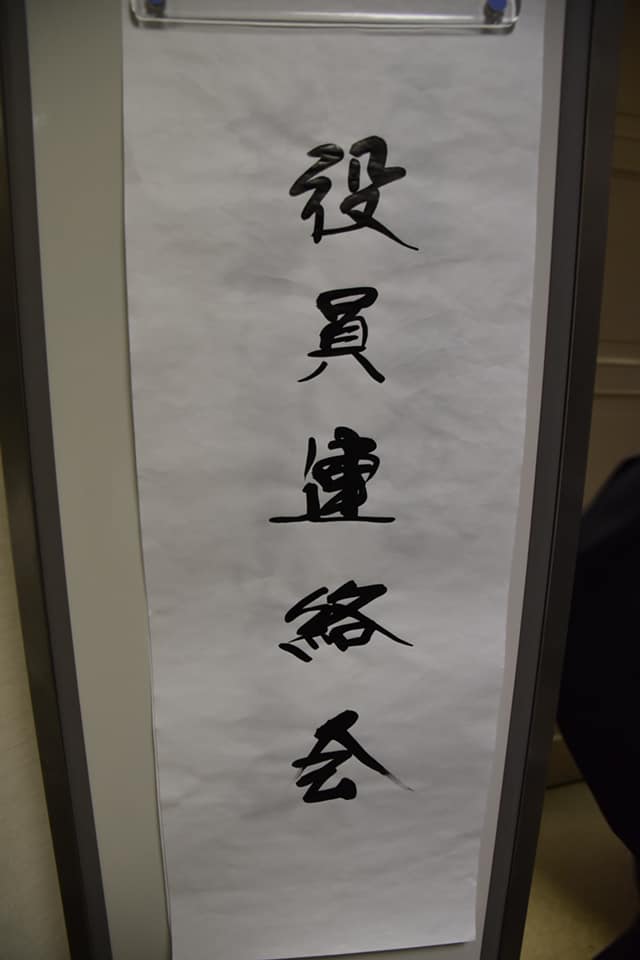 役員連絡会